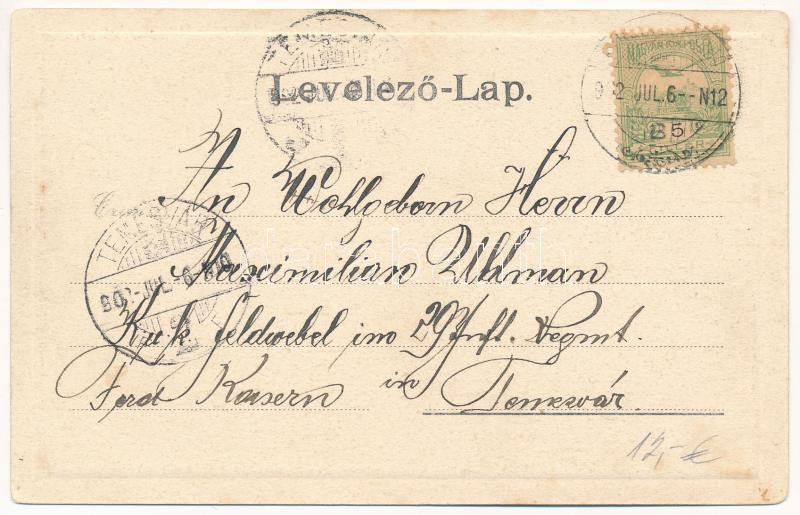 Levelező-Lap.
902 JUL. 6 - N12
B5
MAGYAR KIR. POSTA
TEMESVÁR
902-JUL.-6
2
An Wohlgeborn Herrn
Maximilian Uhlman
K.u.k. feldwebel im 29 Inft. Regmt.
Ferd Kasern in Temesvár.
12,-